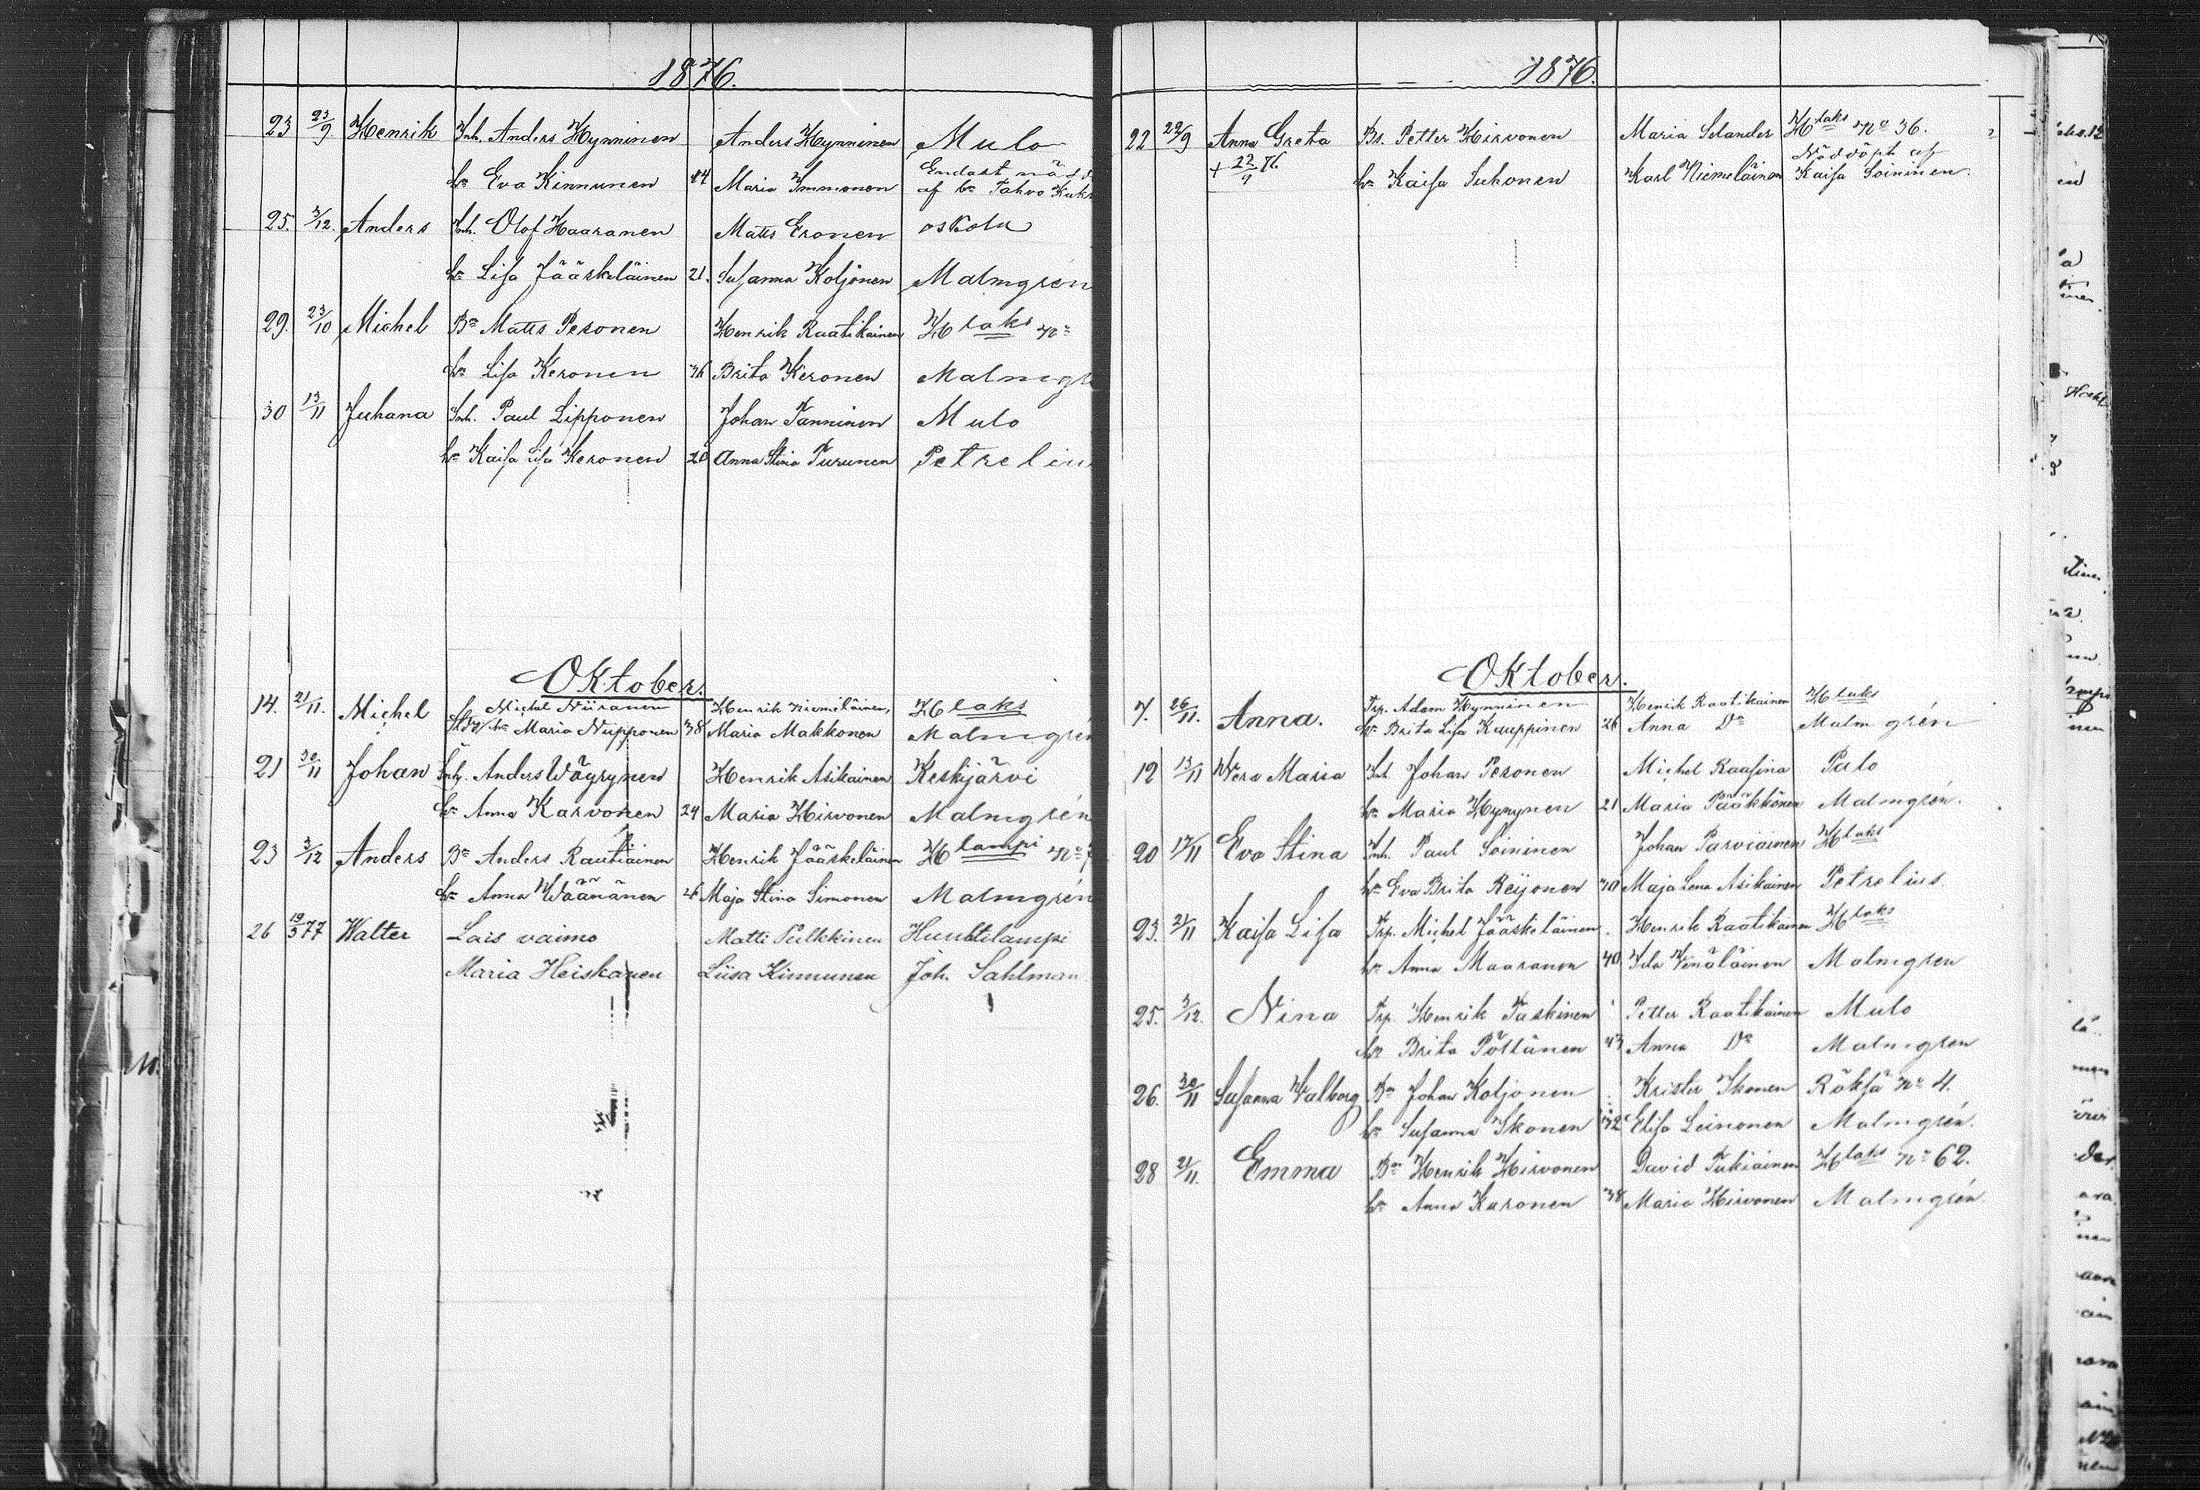 1876.
23 23/9 Henrik Inh. Anders Hynninen Anders Hynninen Mulo
hu Eva Kinnunen 44 Maria Immonen Endast nöd
af bn Pahvo Kukk
25. 3/12. Anders Inh. Olof Haaranen Matts Eronen oskola
hu Lisa Jääskeläinen 21. Susanna Koljonen Malmgren
29. 23/10 Michel Bn Matts Pesonen Henrik Raatikainen H laks No
hu Lisa Keronen 36 Brita Keronen Malmgr
30 13/11 Juhana Inh. Paul Lipponen Johan Tanninen Mulo
hu Kaisa Lisa Keronen 20 Anna Stina Turunen Petreliu
Oktober.
14. 21/11. Michel Michel Niiranen Henrik Niemeläinen, H laks
hu Maria Nupponen 38 Maria Makkonen Malmgrén
21 30/11 Johan Inh. Anders Wäyrynen Henrik Asikainen Keskijärvi
hu Anna Karvonen 24 Maria Hirvonen Malmgrén
23 3/12 Anders Bn Anders Rautiainen Henrik Jääskeläinen H lampi No
hu Anna Wäänänen 26 Maja Stina Simonen Malmgrén
26 19/5 77 Walter Lais vaimo Matti Pulkkinen Huuhtilampi
Maria Heiskanen Liisa Kinnunen Joh. Sahlman
1876.
22 22/9 Anna Greta Bn. Petter Hirvonen Maria Selander H laks No 36.
Nöddöpt af
+ 22/9 76. hu Kaisa Suhonen Karl Niemeläinen Kaisa Soininen.
Oktober.
7. 26/11. Anna. Trp. Adam Hynninen Henrik Raatikainen H laks
hu Brita Lisa Kauppinen 26 Anna Do Malmgrén
12 13/11 Wera Maria Inh Johan Pesonen Michel Raasina Palo
hu Maria Hynynen 21 Maria Pääkkönen Malmgrén.
20 17/11 Eva Stina Inh. Paul Soininen Johan Parviainen H laks
hu Eva Brita Reijonen 40 Maja Lena Asikainen Petrelius
23. 21/11 Kaisa Lisa Trp. Michel Jääskeläinen Henrik Raatikainen H laks
hu Anna Maaranen 40 Ida Venäläinen Malmgren
25. 3/12. Nina Trp. Henrik Taskinen Petter Raatikainen Mulo
hu Brita Pöllänen 43 Anna Do Malmgren
26. 30/11 Susanna Walborg Bn Johan Koljonen Krister Ikonen Röksä No 4.
hu Susanna Ikonen 32 Elisa Leinonen Malmgrén.
28 21/11. Emma Bn Henrik Hirvonen David Tukiainen H laks No 62.
hu Anna Karonen 38 Maria Hirvonen Malmgrén